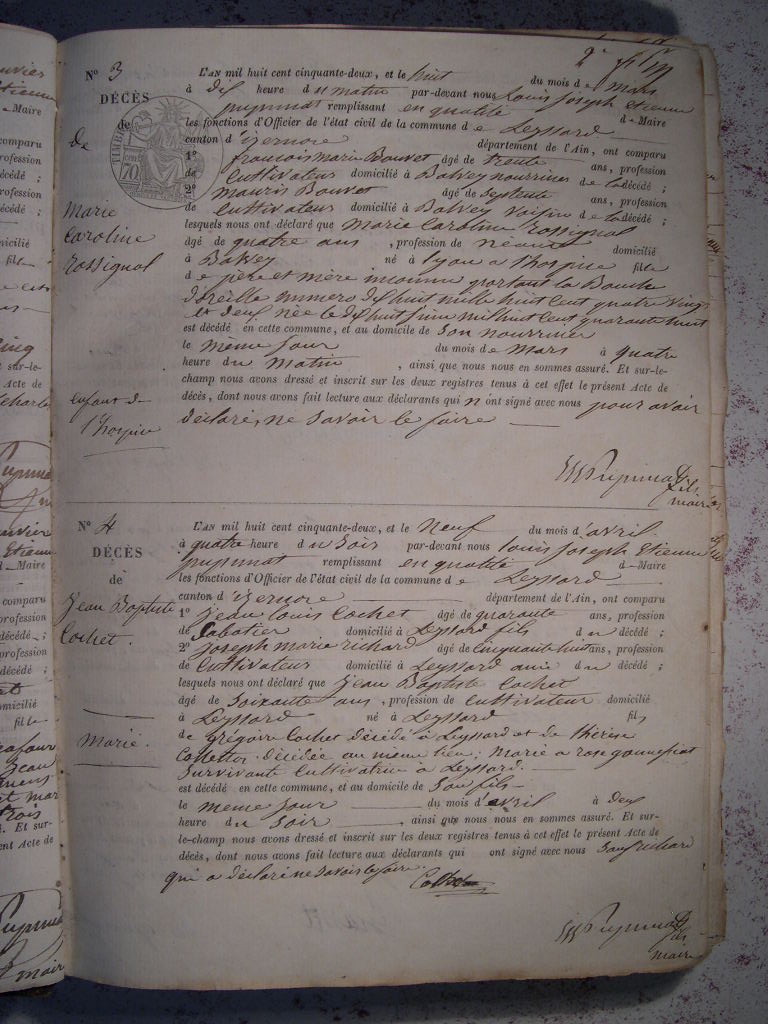 2e
N° 3
DÉCÈS
de
Marie
Caroline
Rossignol
enfant de
l'hospice
L'AN mil huit cent cinquante-deux, et le huit du mois de Mars
à dix heure du matin par-devant nous Louis Joseph Etienne
puyminat remplissant en qualité de Maire
les fonctions d'Officier de l'état civil de la commune de Leyssard
canton d'izernore département de l'Ain, ont comparu
1° francois marie Bouvet âgé de trente ans, profession
de Cultivateurs domicilié à Balvey nourricier de la décédé ;
2° Mauris Bouvet âgé de septente ans, profession
de Cultivateurs domicilié à Balvey Voisin de la décédé ;
lesquels nous ont déclaré que Marie Caroline Rossignol
âgé de quatre ans , profession de néant domicilié
à Balvey né à Lyon a l'hospice fille
de père et mère inconnu portant la Boucle
d'oreille numero dix huit mille huit Cent quatre Vingt
et deux née le dix huit juin mil huit Cent quarante huit
est décédé en cette commune, et au domicile de son nourricier
le même jour du mois de Mars à quatre
heure du Matin , ainsi que nous nous en sommes assuré. Et sur-le-
champ nous avons dressé et inscrit sur les deux registres tenus à cet effet le présent Acte de
décès, dont nous avons fait lecture aux déclarants qui n ont signé avec nous pour avoir
déclaré, ne savoir le faire
Puyminat fils
maire
N° 4
DÉCÈS
de
Jean Baptiste
Cochet.
Marié.
L'AN mil huit cent cinquante-deux, et le Neuf du mois d'avril
à quatre heure du soir par-devant nous Louis Joseph Etienne
puyminat remplissant en qualité de Maire
les fonctions d'Officier de l'état civil de la commune de Leyssard
canton d'izernore département de l'Ain, ont comparu
1° Jean Louis Cochet âgé de quarante ans, profession
de Sabotier domicilié à Leyssard fils du décédé ;
2° Joseph Marie richard âgé de Cinquante huit ans, profession
de Cultivateurs domicilié à Leyssard ami du décédé ;
lesquels nous ont déclaré que Jean Baptiste Cochet
âgé de soixante ans, profession de Cultivateur domicilié
à Leyssard né à Leyssard fils
de Grégoire Cochet décédé à Leyssard et de thérèse
décédée au même lieu ; Marié a rose
Survivante Cultivatrice à Leyssard.
est décédé en cette commune, et au domicile de son fils
le même jour du mois d'avril à Deux
heure du Soir , ainsi que nous nous en sommes assuré. Et sur-
le-champ nous avons dressé et inscrit sur les deux registres tenus à cet effet le présent Acte de
décès, dont nous avons fait lecture aux déclarants qui ont signé avec nous sauf richard
qui a déclaré ne savoir le faire.
Cochet
Puyminat fils
maire